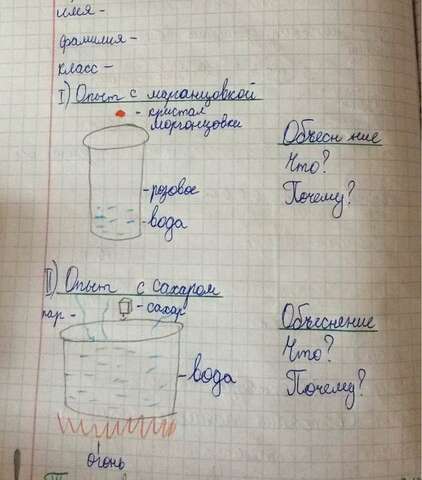 имя -
фамилия -
класс -
I) Опыт с морганцовкой
- кристал
морганцовки
Объесн ние
Что?
Почему?
- розовое
- вода
II) Опыт с сахаром
пар -
- сахар
Объеснение
Что?
Почему?
- вода
огонь